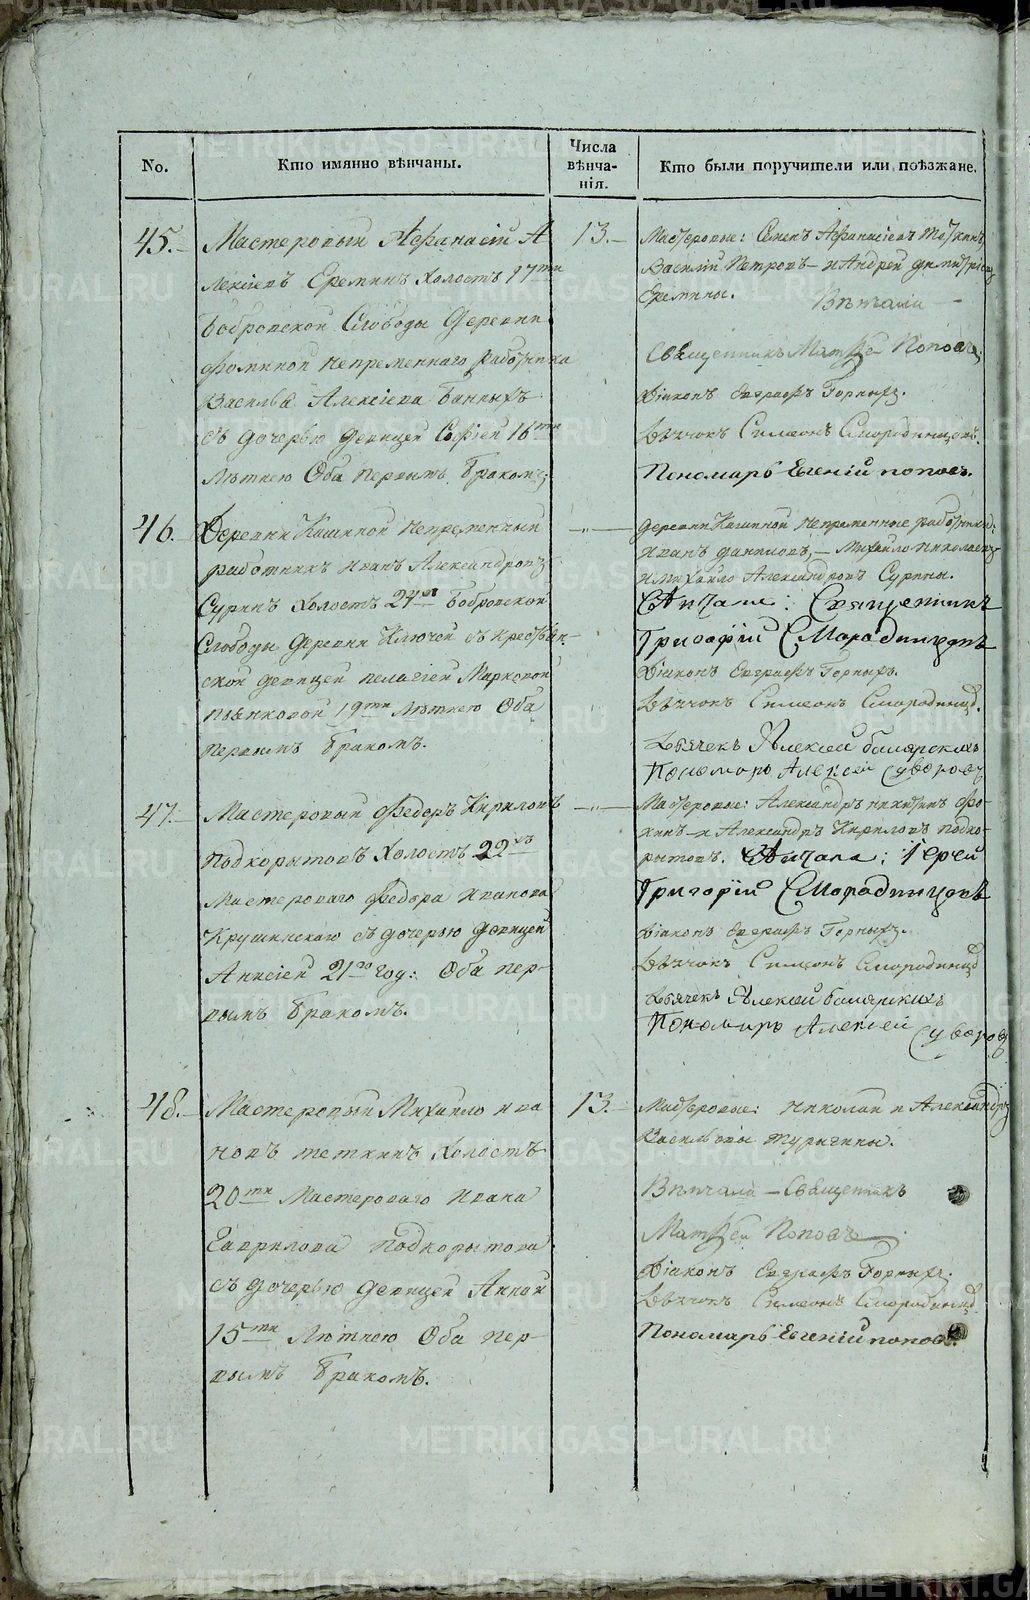 No.
Кто имянно вѣнчаны.
Числа
вѣнча-
нія.
Кто были поручители или поѣзжане.
45.
Мастеровый Афанасій А
лексіевъ Ереминъ Холостъ 17ти
Бобровской Слободы Деревни
Фоминой непременнаго работника
Василья Алексіева Банныхъ
съ дочерью девицей Софіей 16ти
Лѣтнею Оба первымъ бракомъ
13.
Мастеровые: Семенъ Афанасіевъ
Василій Петровъ - и Андрей Димитріевъ
Еремины. Вѣнчали
Священникъ Матѳей Поповъ.
Діаконъ Евграфъ Горныхъ.
Дьячокъ Симеонъ Смородинцов.
Пономарь Евгеній попов.
46.
Деревни Кашиной непременный
работникъ Иванъ Александровъ
Суринъ Холостъ 24 Бобровской
Слободы Деревни Ключей съ крестьян-
ской девицей пелагіей Марковой
19ти Лѣтнею Оба
первымъ бракомъ.
— „ —
деревни Кашиной непременные работники:
Иванъ Даниловъ, - Михайло Николаевъ
и Михайло Александровъ Сурины.
Вѣнчали: Священникъ
Григорій Смородинцовъ
Діаконъ Евграфъ Горныхъ.
Дьячокъ Симеонъ Смородинцов.
Дьячекъ Алексей
Пономарь Алексей Суворовъ
47.
Мастеровый Федоръ Кириловъ
Подкорытовъ Холостъ 22хъ
Мастероваго Федора Иванова
Крушинскаго съ дочерью девицей
Анисіей 21го год: Оба пер-
вымъ бракомъ.
— „ —
Мастеровые: Александръ никитинъ Фо-
кинъ - и Александръ Кириловъ подко-
рытовъ. Вѣнчали: Іерей
Григорій Смородинцовъ
Діаконъ Евграфъ Горныхъ.
Дьячокъ Симеонъ Смородинцов
Дьячекъ Алексей
Пономарь Алексей Суворовъ
48.
Мастеровый Михайло ива
новъ теткинъ Холостъ
20ти Мастероваго Ивана
Гаврилова Подкорытова
съ дочерью девицей Анной
15ти Лѣтнею Оба пер-
вымъ бракомъ.
13.
Мастеровые: Николай и Александръ
Васильевы турыгины.
Вѣнчали - Священникъ
Матѳей Поповъ
Діаконъ Евграфъ Горныхъ.
Дьячокъ Симеонъ Смородинцов
Пономарь Евгеній попов.
METRIKI.GASO-URAL.RU